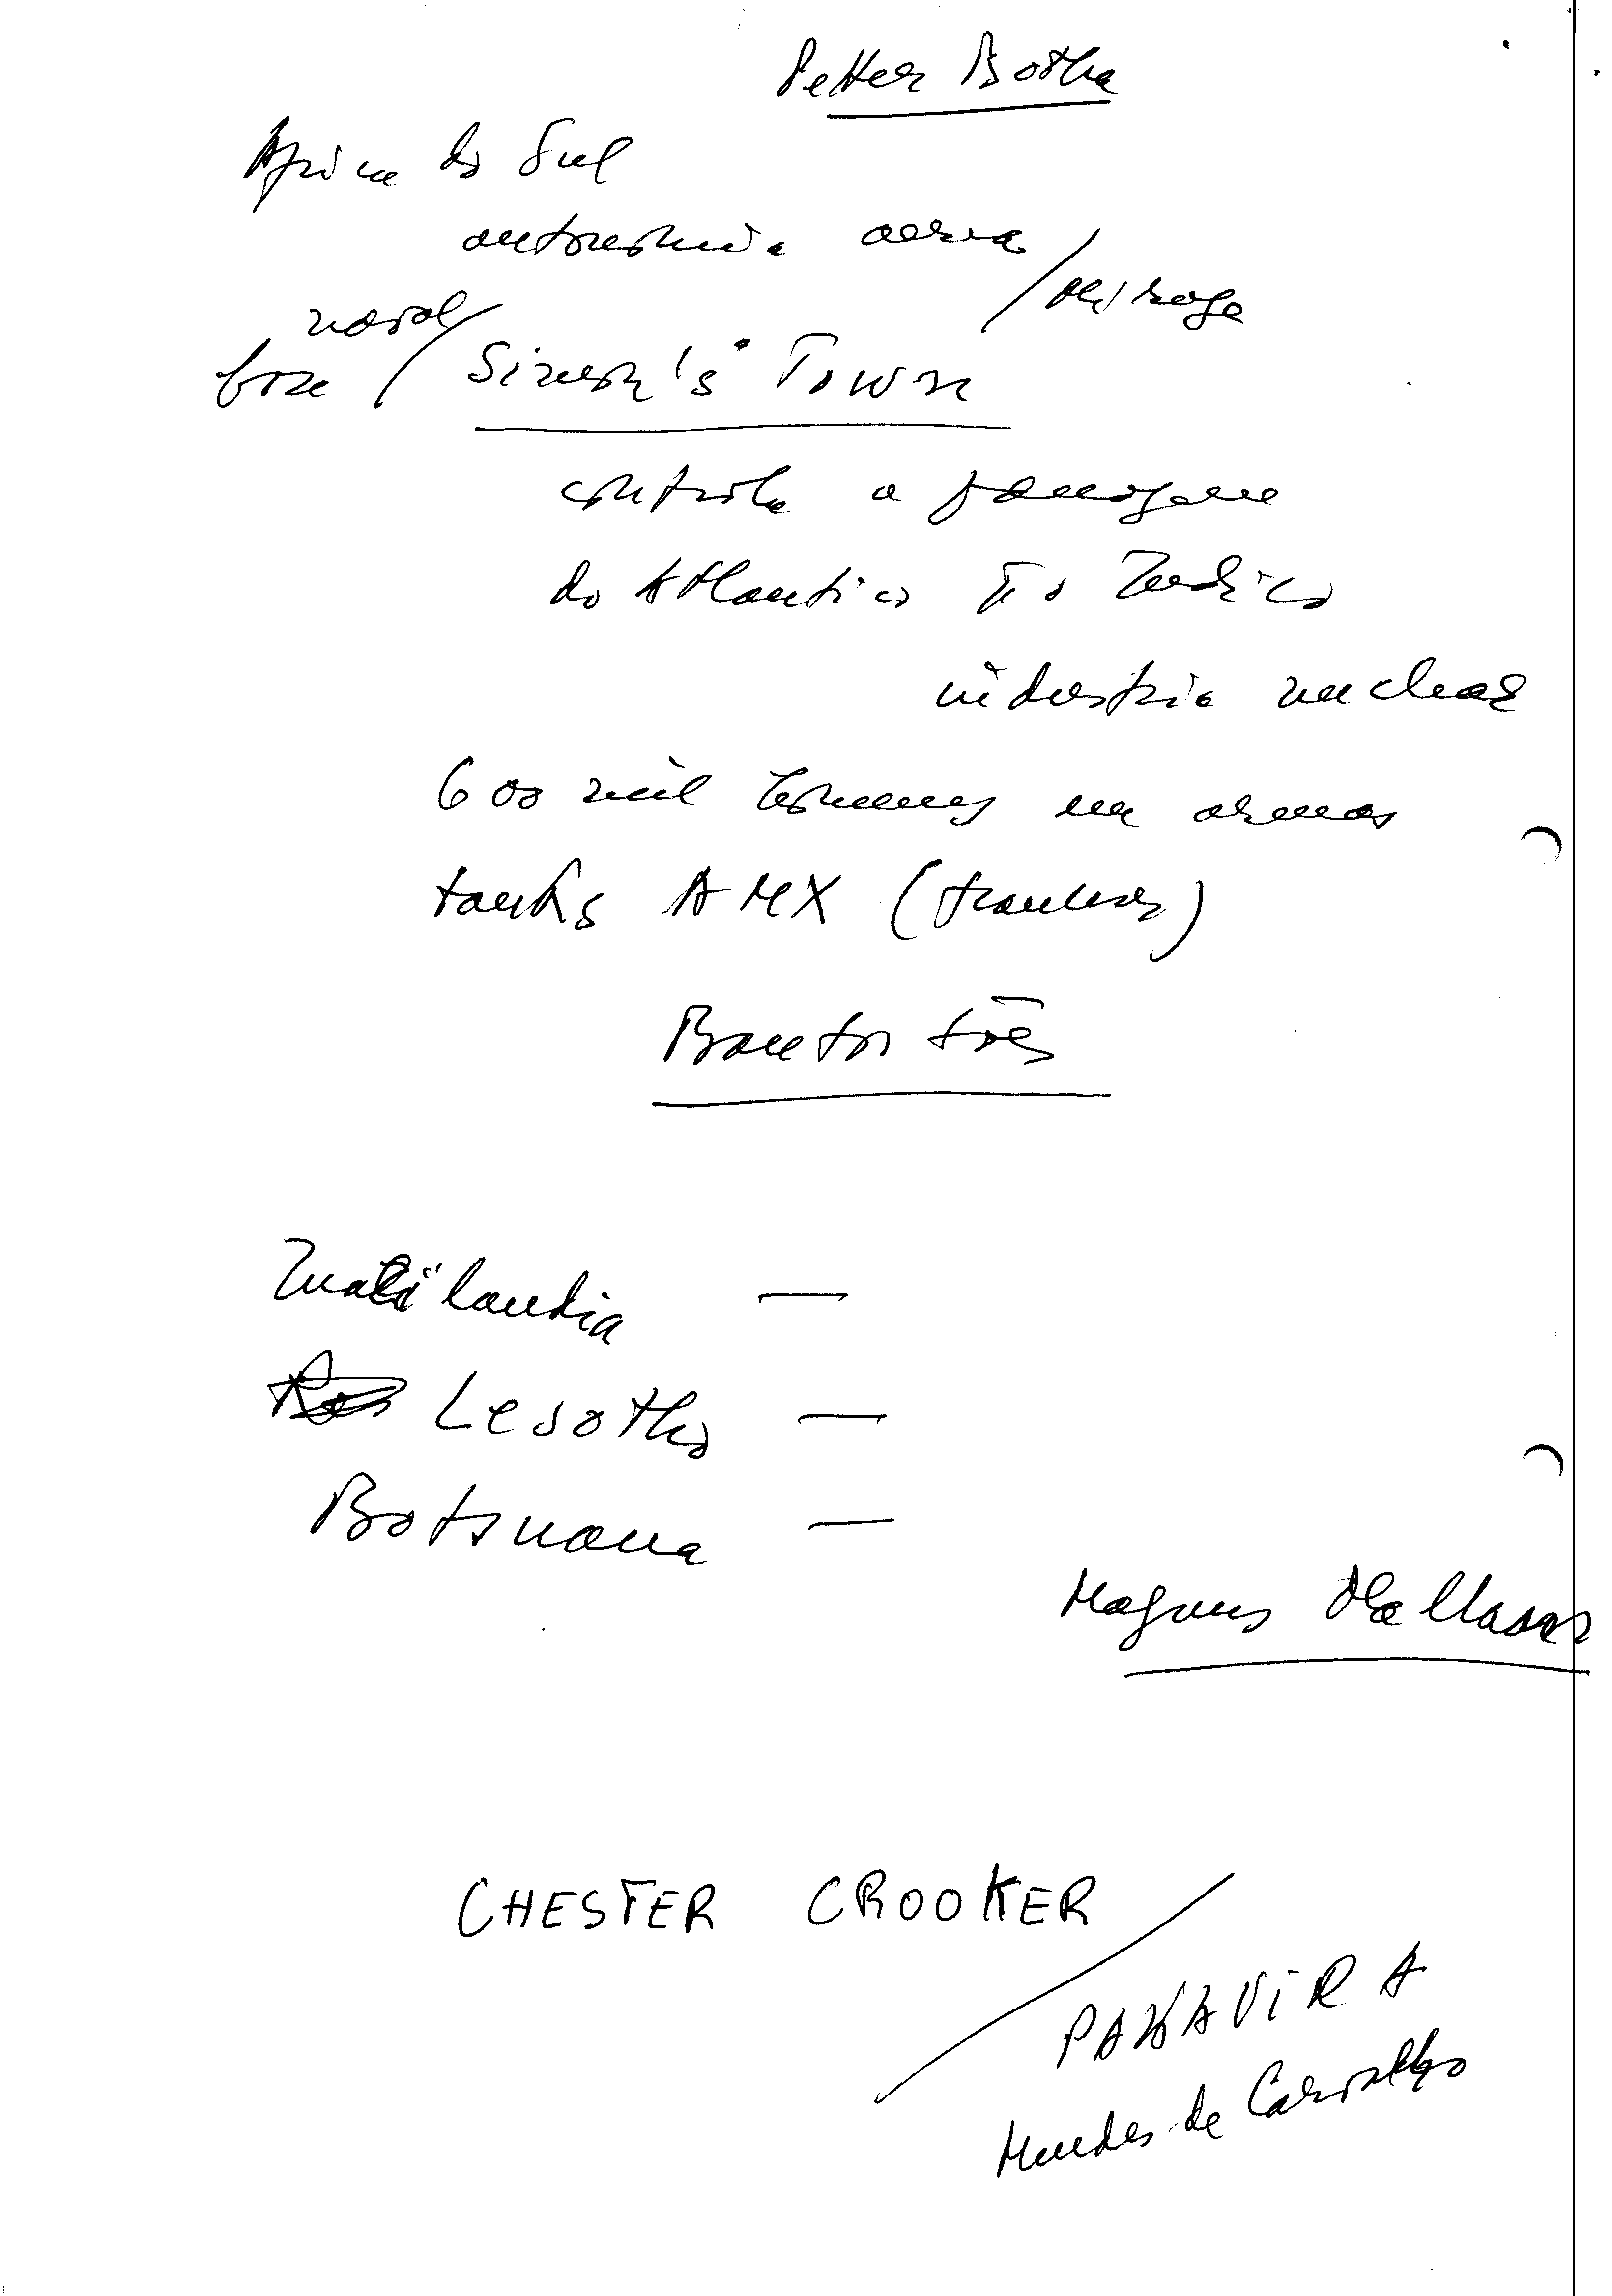 Petter Botha
Africa do Sul
autonomia aerea
/ Mirage
naval
base / Simon's Town
controla a passagem
do Atlantico p/o Indico
industria nuclear
600 mil homens em armas
tanks AMX (franceses)
Bantustões
Suazilandia —
Lesotho —
Botsuana —
Magnus Mallans
CHESTER CROOKER
PAKAVIRA
Mendes de Carvalho